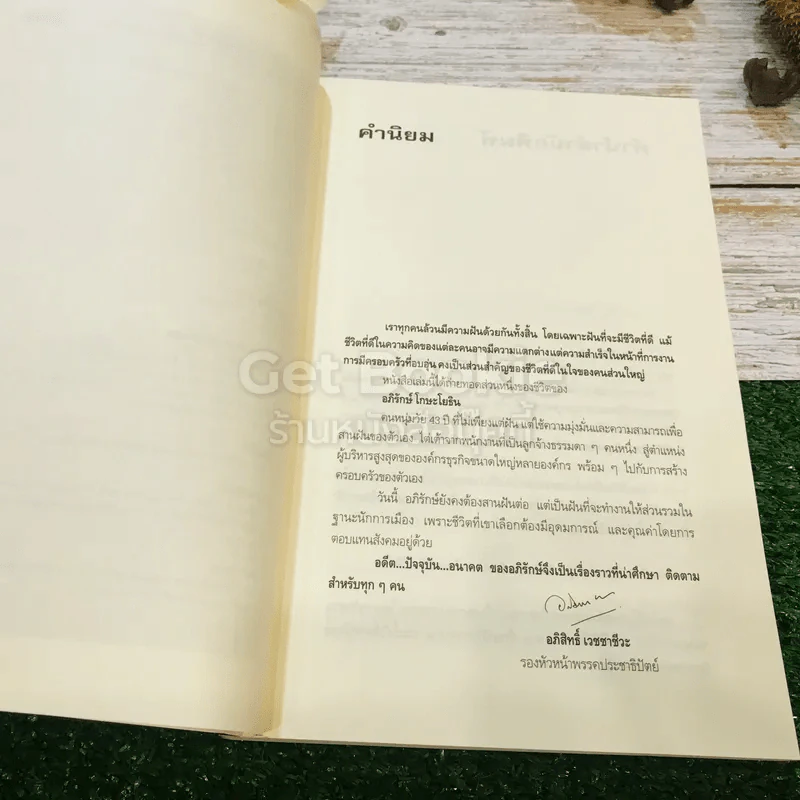 คำนิยม
เราทุกคนล้วนมีความฝันด้วยกันทั้งสิ้น โดยเฉพาะฝันที่จะมีชีวิตที่ดี แม้
ชีวิตที่ดีในความคิดของแต่ละคนอาจมีความแตกต่างแต่ความสำเร็จในหน้าที่การงาน
การมีครอบครัวที่อบอุ่น คงเป็นส่วนสำคัญของชีวิตที่ดีในใจของคนส่วนใหญ่
หนังสือเล่มนี้ได้ถ่ายทอดส่วนหนึ่งของชีวิตของ
อภิรักษ์ โกษะโยธิน
คนหนุ่มวัย 43 ปี ที่ไม่เพียงแต่ฝัน แต่ใช้ความมุ่งมั่นและความสามารถเพื่อ
สานฝันของตัวเอง ไต่เต้าจากพนักงานที่เป็นลูกจ้างธรรมดา ๆ คนหนึ่ง สู่ตำแหน่ง
ผู้บริหารสูงสุดขององค์กรธุรกิจขนาดใหญ่หลายองค์กร พร้อม ๆ ไปกับการสร้าง
ครอบครัวของตัวเอง
วันนี้ อภิรักษ์ยังคงต้องสานฝันต่อ แต่เป็นฝันที่จะทำงานให้ส่วนรวมใน
ฐานะนักการเมือง เพราะชีวิตที่เขาเลือกต้องมีอุดมการณ์ และคุณค่าโดยการ
ตอบแทนสังคมอยู่ด้วย
อดีต...ปัจจุบัน...อนาคต ของอภิรักษ์จึงเป็นเรื่องราวที่น่าศึกษา ติดตาม
สำหรับทุก ๆ คน
อภิสิทธิ์ เวชชาชีวะ
รองหัวหน้าพรรคประชาธิปัตย์